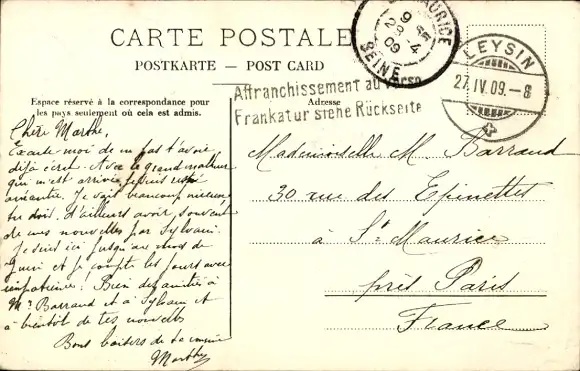 CARTE POSTALE
POSTKARTE — POST CARD
MAURICE
SEINE
LEYSIN
27.IV.09.–8
Affranchissement au verso
Frankatur siehe Rückseite
Espace réservé à la correspondance pour
les pays seulement où cela est admis.
Adresse
Chère Marthe,
Excuse moi de ne pas t'avoir
déjà écrit. Avec le grand malheur
qui m'est arrivé je suis resté
anéantie. Je vais beaucoup mieux
tu dois d'ailleurs avoir souvent
de mes nouvelles par Sylvain.
Je suis ici jusqu'au mois de
Juin et je compte les jours avec
impatience. Bien des amitiés à
Mr. Barraud et à Sylvain et
à bientôt de tes nouvelles
Bons baisers de ta cousine
Marthe
Mademoiselle M. Barraud
30 rue des Epinettes
à St. Maurice
près Paris
France